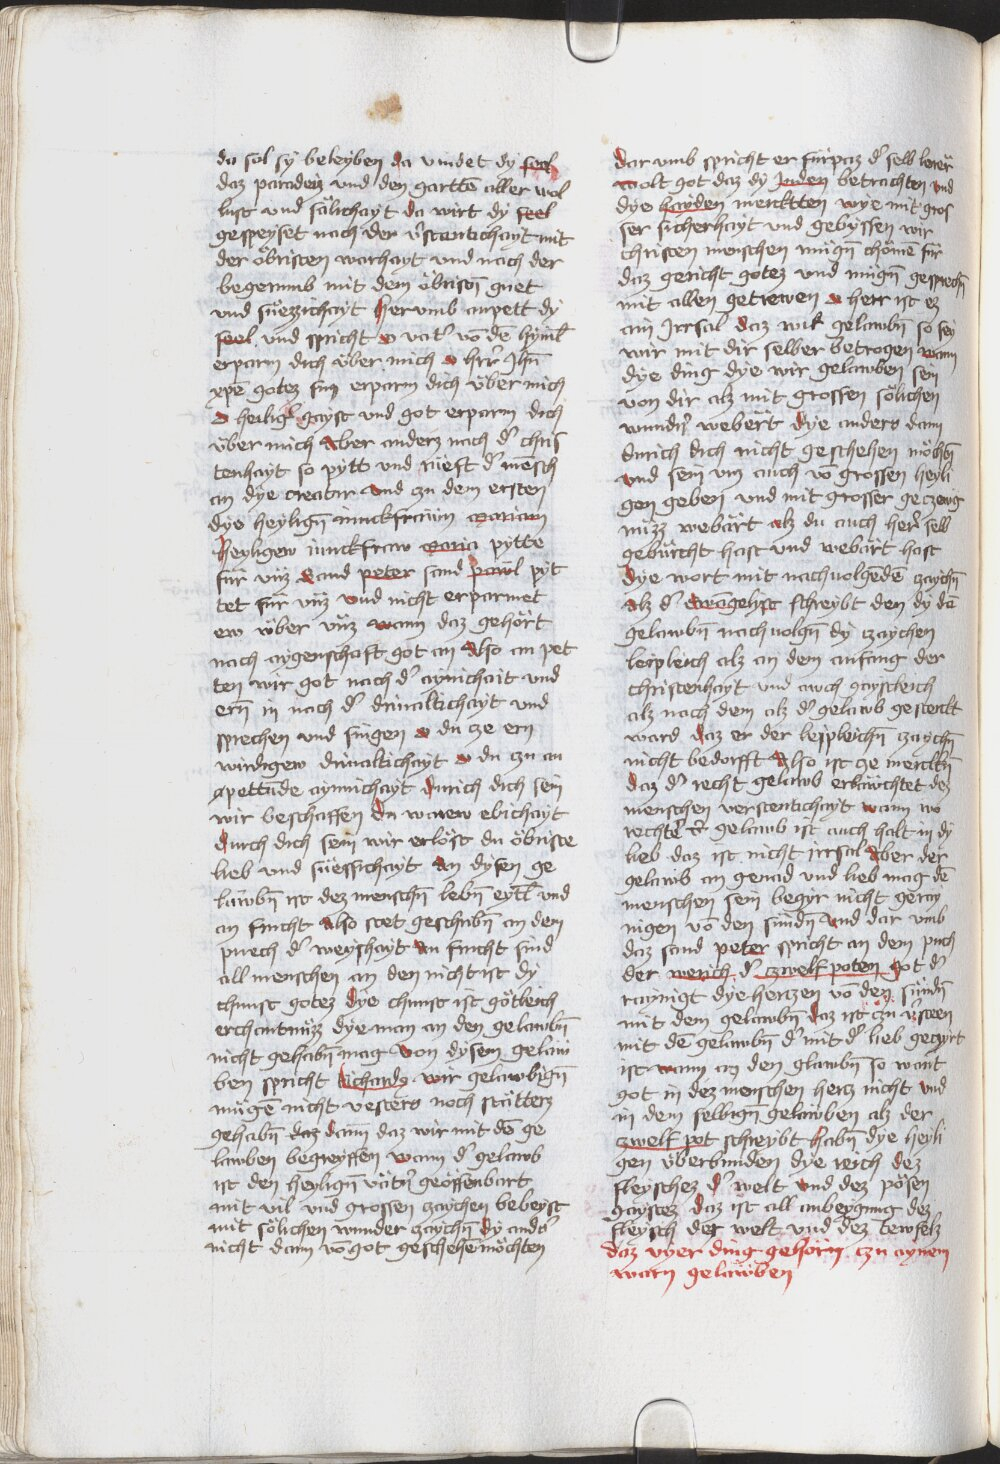 da sol sy beleyben da vindet dy seel
daz paradeiz vnd den gartte aller wol
lust vnd sälichayt da wirt dy seel
gespeyset nach der v̾stantichayt mit
der öbristen warhayt vnd nach der
begerung mit dem öbristn̄ guet
vnd süezzichayt Hervmb anpett dy
seel vnd spricht o vat̾ vō dē hyml̄
erparm dich über mich o hr̄ Jhū
xpē gotez sun erparm dich über mich
o heilig̾ gayst vnd got erparm dich
über mich Aber anderz nach d̾ chris
tenhayt so pytt vnd rüeft d̾ mēsch
an dye creatur vnd czu dem ersten
dye heylign̄ iunckfrawn mariam
Heyligew iunckfraw maria pytte
für vnz Sand peter sand pawl pyt
tet für vnz vnd nicht erparmet
ew über vnz wann daz gehört
nach aygenschaft got an Also an pet
ten wir got nach d̾ aynichait vnd
ern̄ in nach d̾ driualtichayt vnd
sprechen vnd singen o du ze ern
wirdigew driualtichayt o du czu an
pettūde aynnichayt durich dich sein
wir beschaffen du warew ebichayt
durch dich sein wir erlöst du öbriste
lieb vnd süessichayt An dysen ge
lawbn̄ ist dez menschn̄ lebn̄ eytl̄ vnd
an frucht Also stet geschribn̄ an dem
puech d̾ weyshayt An frucht sind
all menschen an den nicht ist dy
chunst gotez dye chunst ist götleich
erchantnüzz dye man an den gelawbn̄
nicht gehabn̄ mag Von dysem gelaw
ben spricht Richardus wir gelawbign̄
mügē nicht vesters noch stätterz
gehabn̄ daz dann daz wir mit dē ge
lawben begreyffen wann d̾ gelawb
ist den heylign̄ vätn̄ geöffenbart
mit vil vnd grossen zaychen bebeyst
mit sölichen wunder zaychn̄ dy and̾s
nicht dann vō got gescheħē möchten
Dar vmb spricht er fürpaz d̾ selb lerer
wolt got daz dy Juden betrachten vnd
dye hayden merckten wye mit gros
ser sicherhayt vnd gebyssen wir
christen menschen mügn̄ chömē für
daz gericht gotez vnd mügn̄ gesprechn̄
mit allen getrewen o herr ist ez
ain Irrsal daz wir gelawbn̄ so sey
wir mit dir selber betrogen wann
dye ding dye wir gelawben sein
von dir alz mit grossen sölichen
wundn̾ webärt dye anders dann
durich dich nicht geschehen möchn̄
vnd sein vns auch vō grossen heyli
gen geben vnd mit grosser geczewg
nüzz webärt alz du auch her̄ selb
gebürcht hast vnd webärt hast
dye wort mit nachuolgēdē zaychn̄
Alz d̾ ewāgelist schreybt den dy da
gelawbn̄ nachuolgn̄ dy zaychen
leipleich alz an dem anfang der
christenhayt vnd awch gaystleich
alz nach dem alz d̾ gelawb gesterckt
ward daz er der leipleichn̄ zaychn̄
nicht bedorfft Also ist ze merckn̄
daz d̾ recht gelawb erläwchtet dez
menschen verstentichayt wann wo
rechter gelawb ist auch halt in dy
lieb daz ist nicht irrsal Aber der
gelawb an genad vnd lieb mag dē
menschen sein begir nicht geray
nigen vō den sündn̄ vnd dar vmb
daz sand peter spricht an dem puch
der werich d̾ czwelf poten got d̾
raynigt dye herczen vō den sündn̄
mit dem gelawbn̄ daz ist czu v̾steen
mit dē gelawbn̄ d̾ mit d̾ lieb geczyrt
ist wann an den glawbn̄ so wont
got in dez menschen hercz nicht vnd
in dem selbign̄ gelawben alz der
zwelf pot schreybt habn̄ dye heyli
gen überbunden dye reich dez
fleyschez d̾ welt vnd dez pösen
gaystez daz ist all anbeygung dez
fleysch der welt vnd dez tewfelz
daz vyer ding gehörn czu aynem
warn gelawben